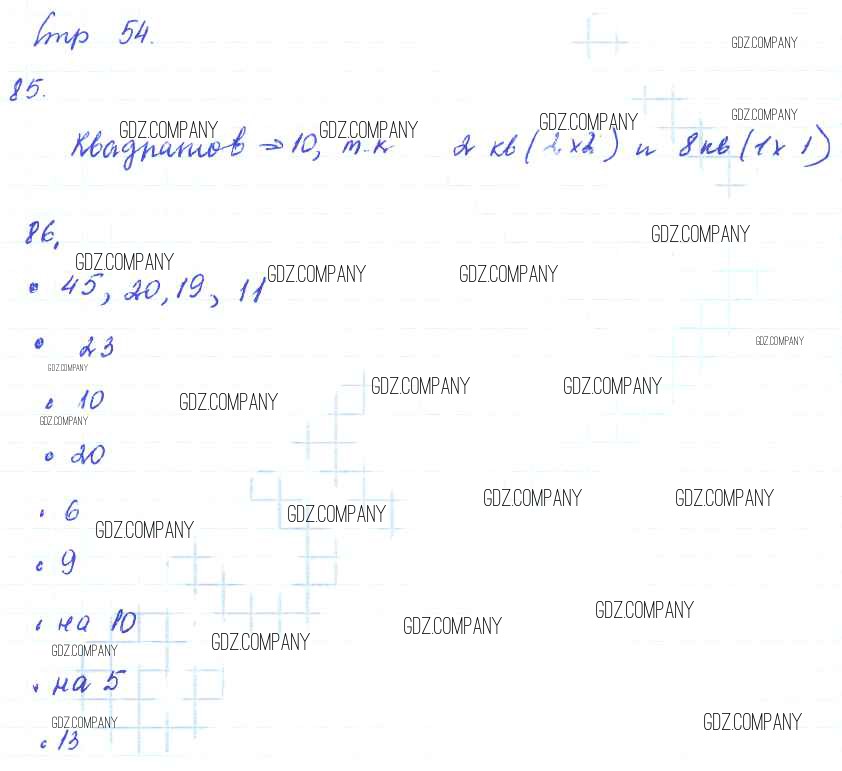 Стр 54.
GDZ.COMPANY
85.
GDZ.COMPANY
GDZ.COMPANY GDZ.COMPANY GDZ.COMPANY
Квадратов => 10, т.к 2 кв (2x2) и 8 кв (1x1)
86.
GDZ.COMPANY
GDZ.COMPANY GDZ.COMPANY GDZ.COMPANY
• 45, 20, 19, 11
• 23
GDZ.COMPANY
GDZ.COMPANY
• 10
GDZ.COMPANY GDZ.COMPANY GDZ.COMPANY
GDZ.COMPANY
• 20
• 6
GDZ.COMPANY GDZ.COMPANY GDZ.COMPANY GDZ.COMPANY
• 9
• на 10
GDZ.COMPANY GDZ.COMPANY GDZ.COMPANY
GDZ.COMPANY
• на 5
GDZ.COMPANY GDZ.COMPANY
• 13